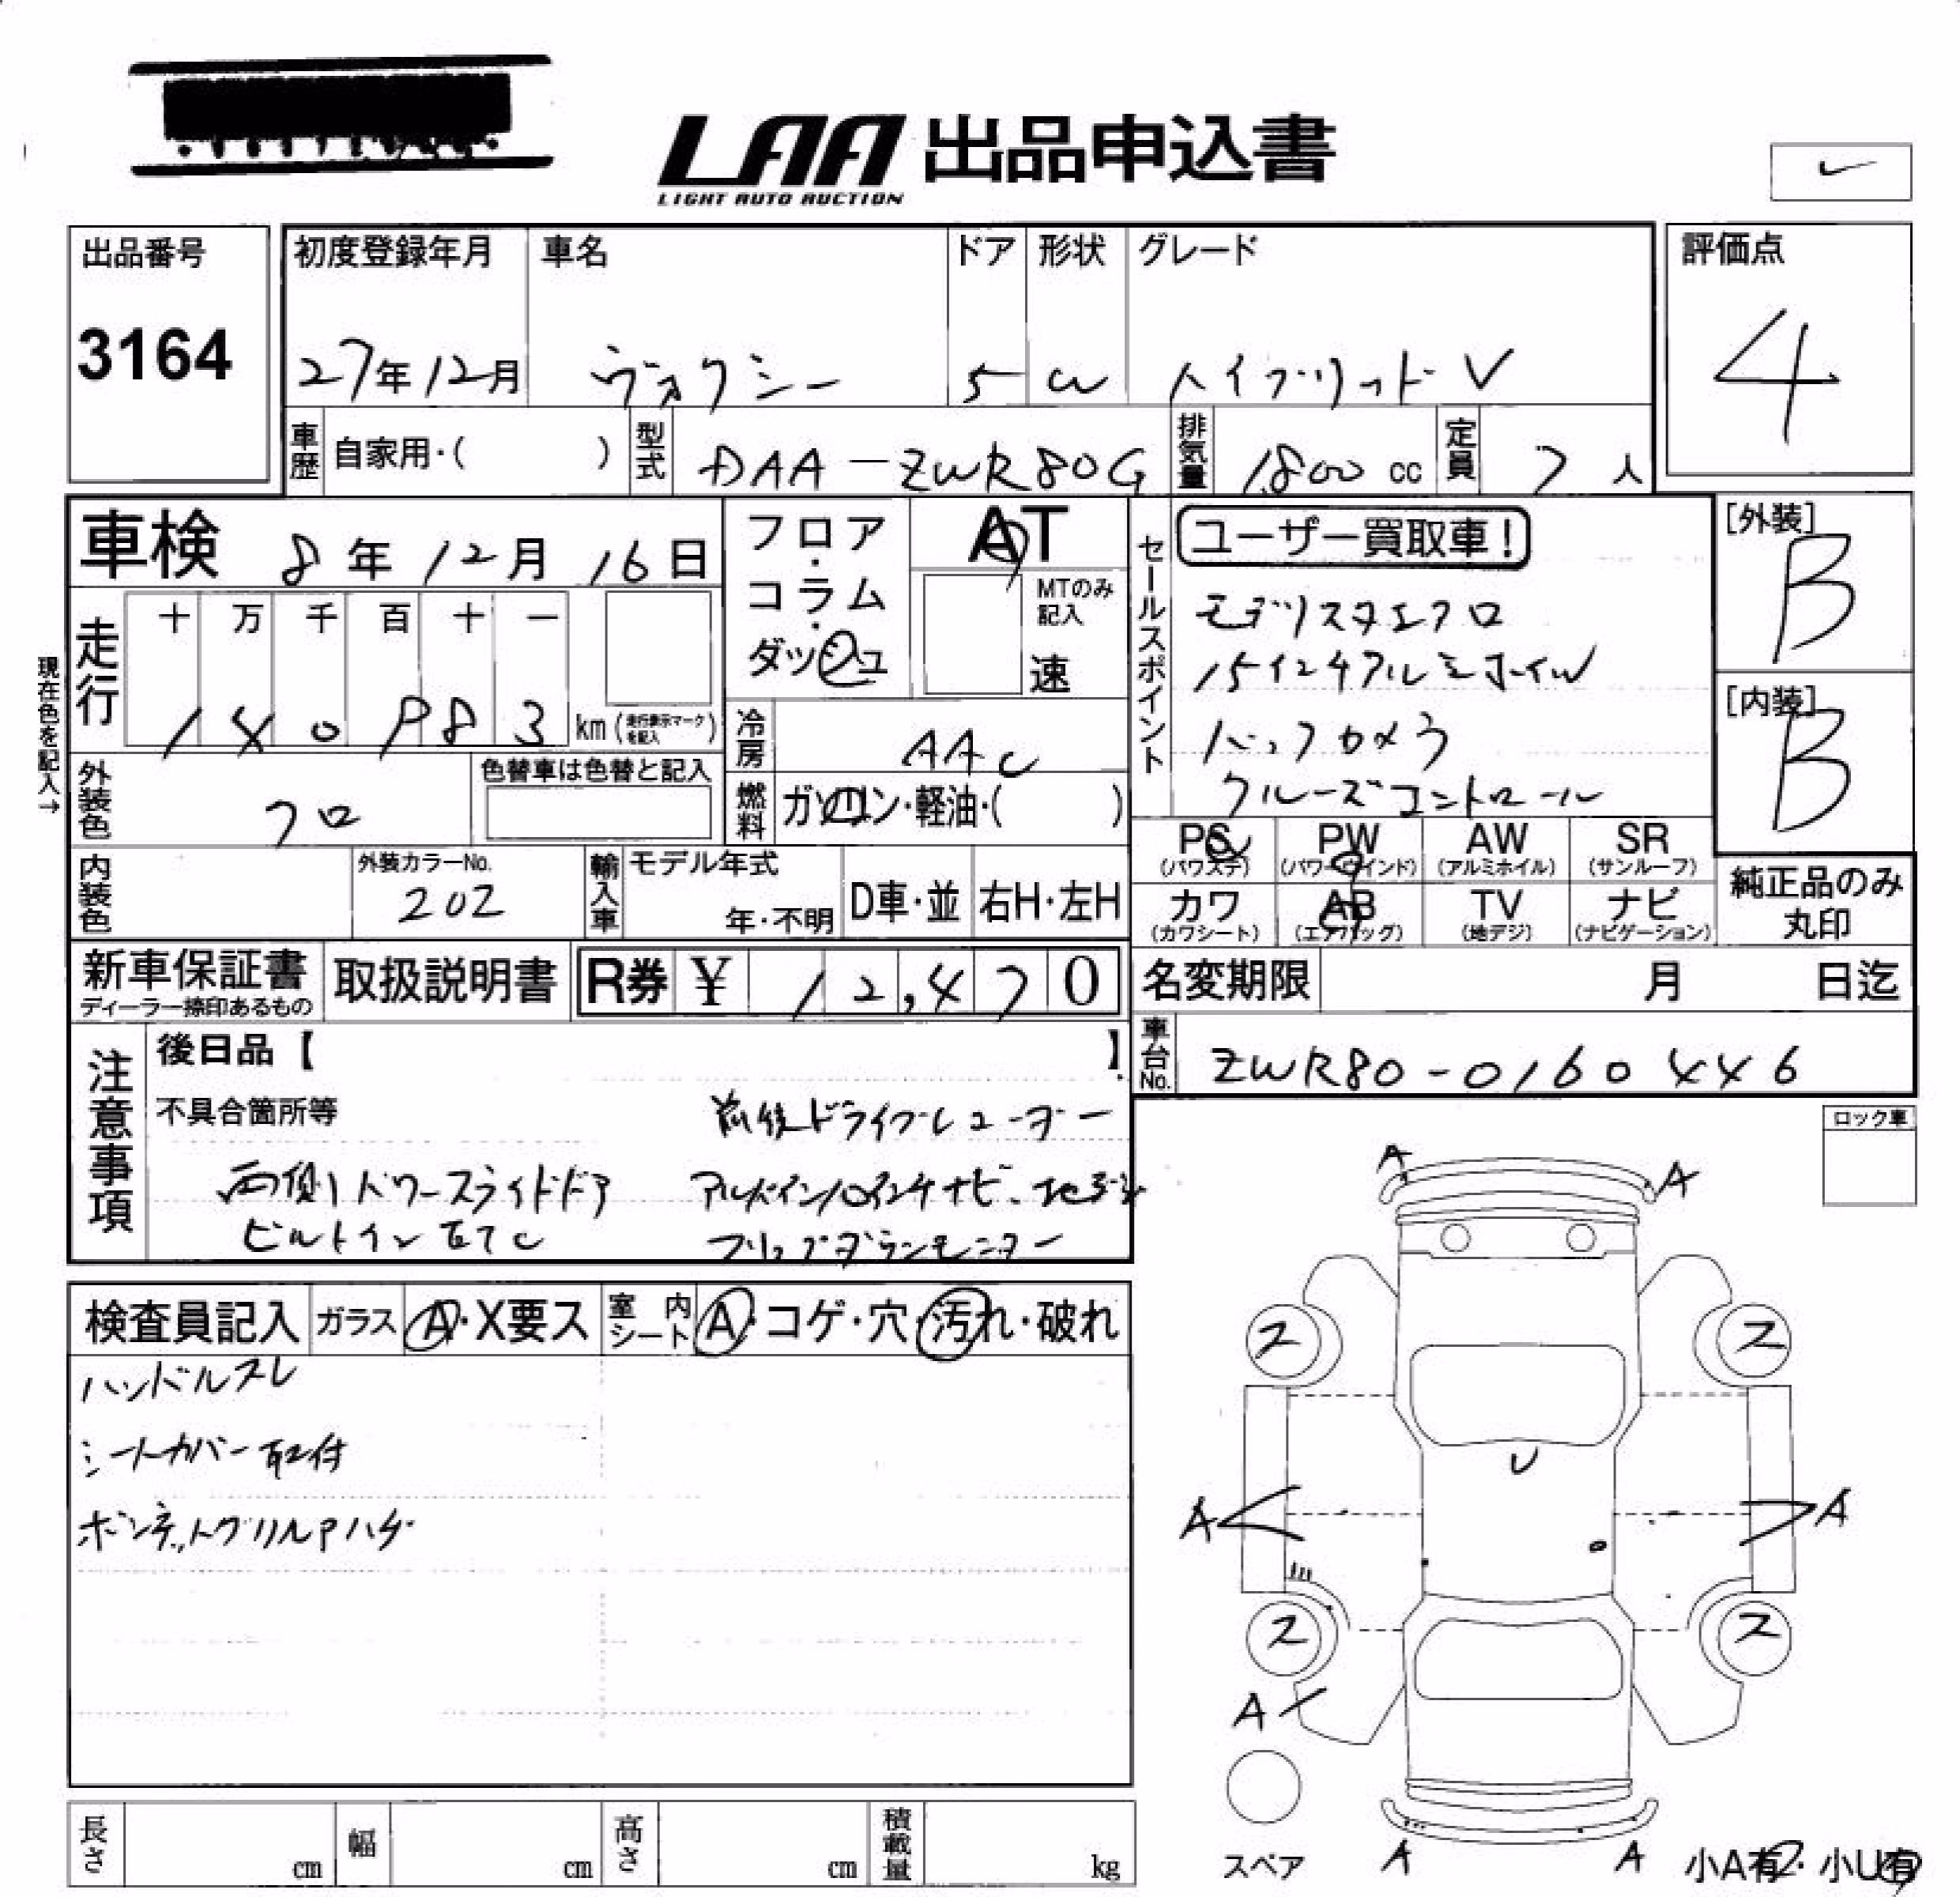 LAA 出品申込書
LIGHT AUTO AUCTION
出品番号
3164
初度登録年月 車名 ドア 形状 グレード
27年12月 ヴォクシー 5 W ハイブリッドV
評価点
4
車歴 自家用・( ) 型式 DAA-ZWR80G 排気量 1800 cc 定員 7人
車検 8年12月16日
フロア・コラム・ダッシュ
AT
MTのみ記入
速
セールスポイント
ユーザー買取車!
モデリスタエアロ
15インチアルミホイル
バックカメラ
クルーズコントロール
[外装]
B
[内装]
B
現在色を記入→
走行 十 万 千 百 十 一
140983 km (走行表示マークを記入)
冷房 AAC
外装色 クロ
色替車は色替と記入
燃料 ガソリン・軽油・( )
PS (パワステ) PW (パワーウインド) AW (アルミホイル) SR (サンルーフ)
内装色
外装カラーNo.
202
輸入車 モデル年式
年・不明 D車・並 右H・左H
カワ (カワシート) AB (エアバッグ) TV (地デジ) ナビ (ナビゲーション)
純正品のみ丸印
新車保証書
ディーラー捺印あるもの
取扱説明書 R券 ¥ 12,470
名変期限 月 日迄
車台No. ZWR80-0160446
注意事項
後日品【 】
不具合箇所等
前後ドライブレコーダー
両側パワースライドドア アルパイン10インチナビ、地デジ
ビルトインETC フリップダウンモニター
ロック車
検査員記入 ガラス A・X要ス 室内シート A・コゲ・穴・汚れ・破れ
ハンドルスレ
シートカバー取付
ボンデットグリルPハゲ
A A
ス ス
U
A A
ス ス
A
スペア A A 小A有・小U有
長さ cm 幅 cm 高さ cm 積載量 kg